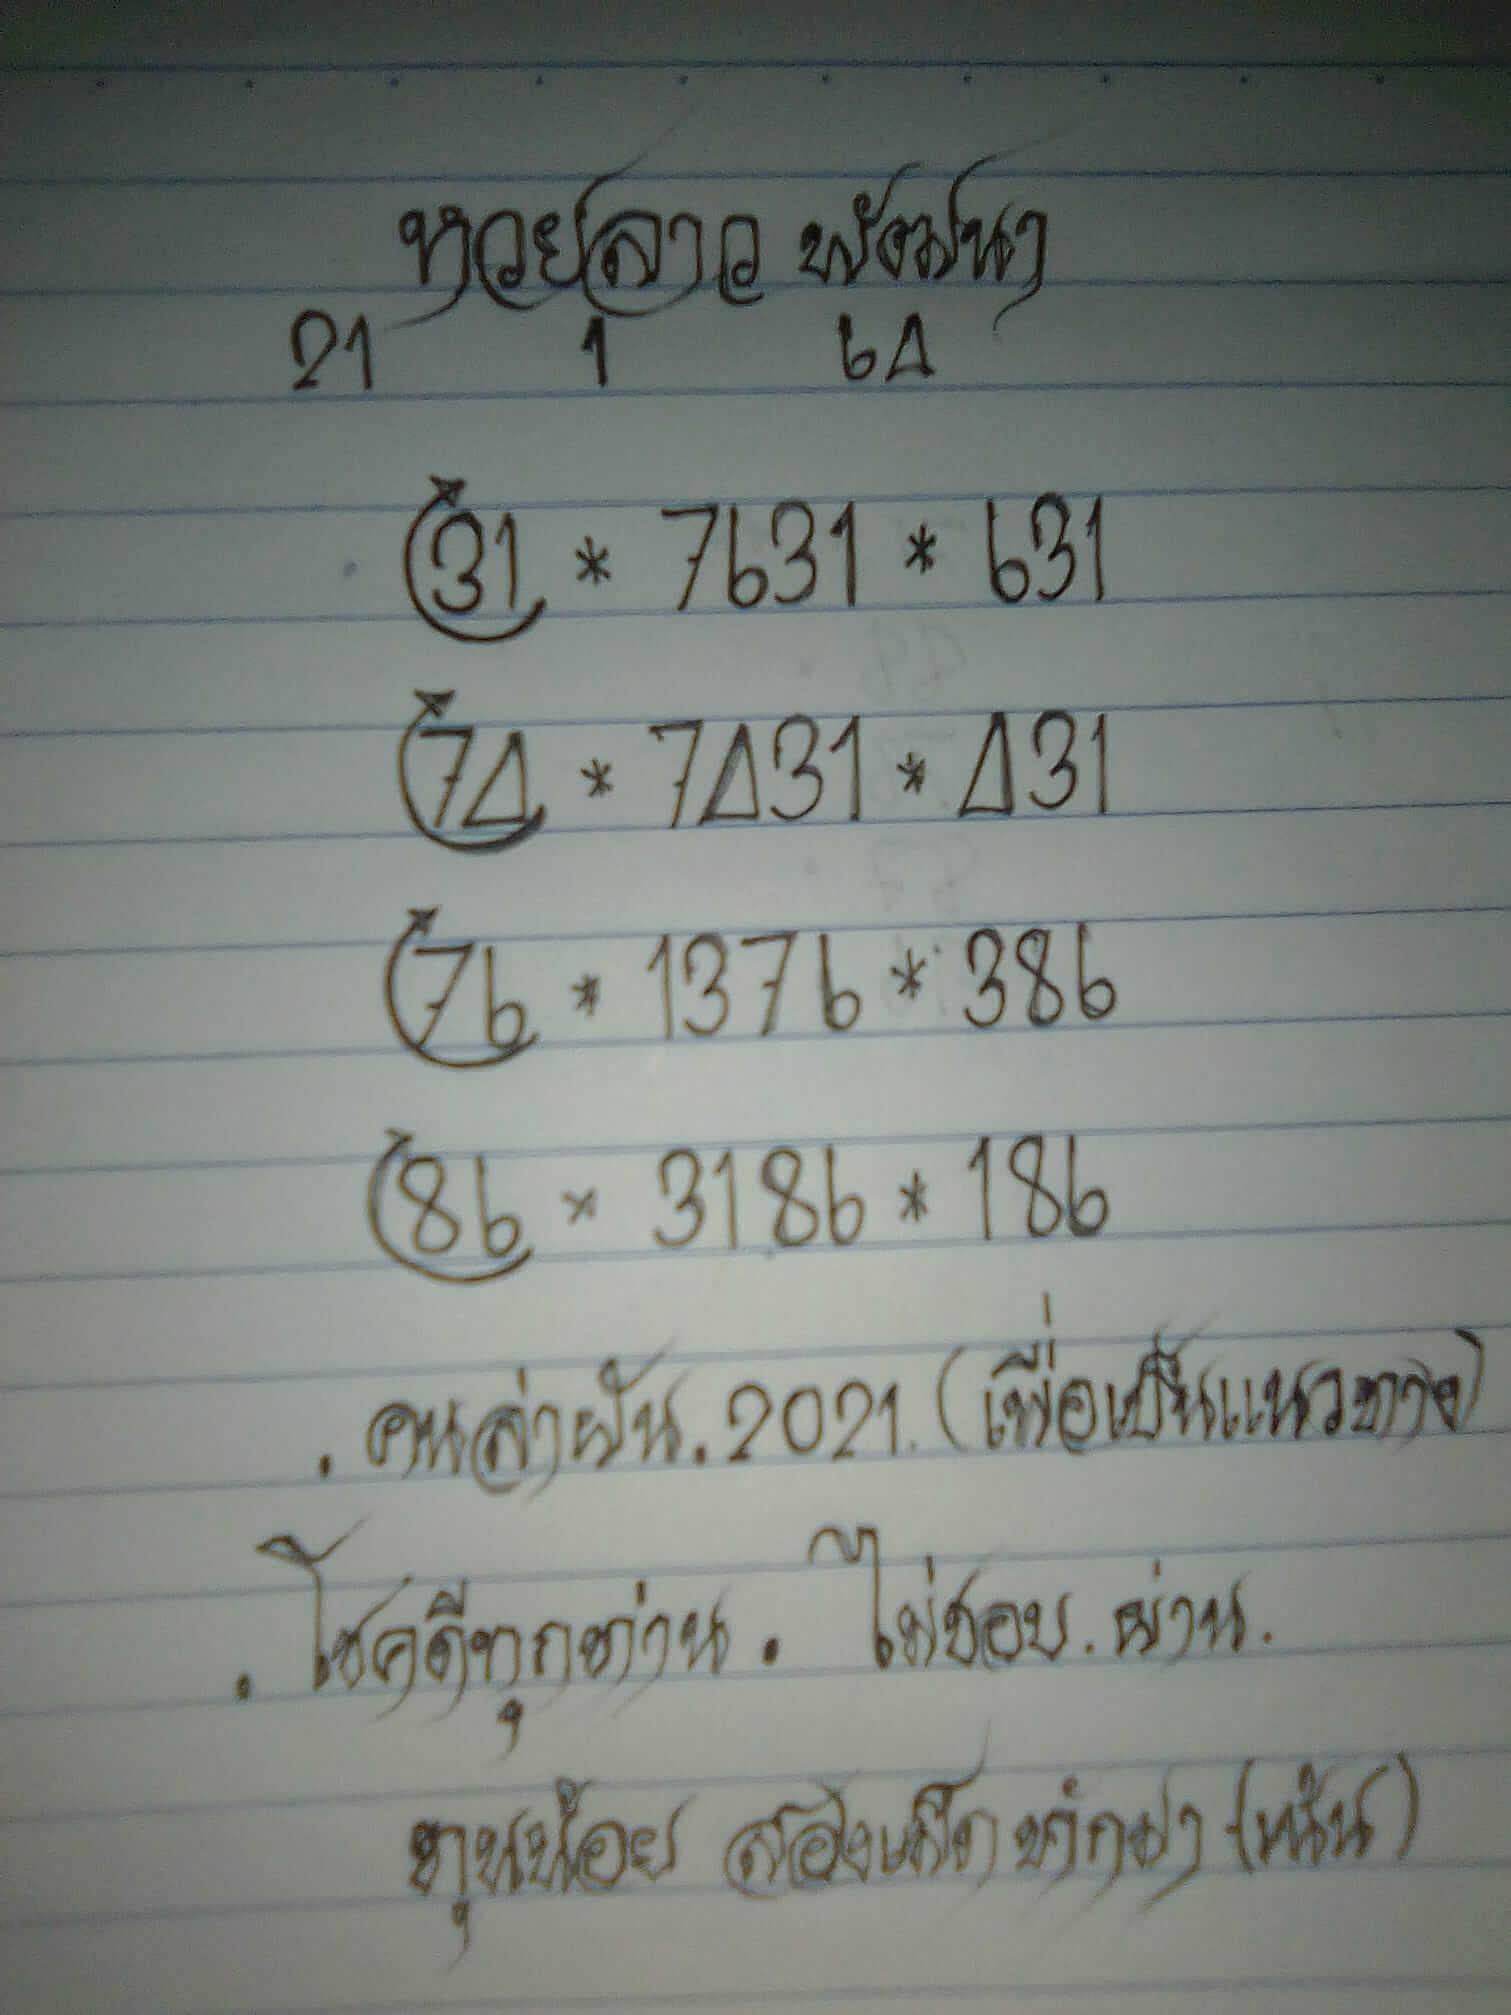 หวยลาว พัฒนา
21 1 64
31 * 7631 * 631
74 * 7431 * 431
76 * 1376 * 386
86 * 3186 * 186
. คนล่าฝัน. 2021. (เพื่อเป็นแนวทาง)
. โชคดีทุกท่าน. ไม่ชอบ. ผ่าน.
ทุนน้อย สอง (เน้น)